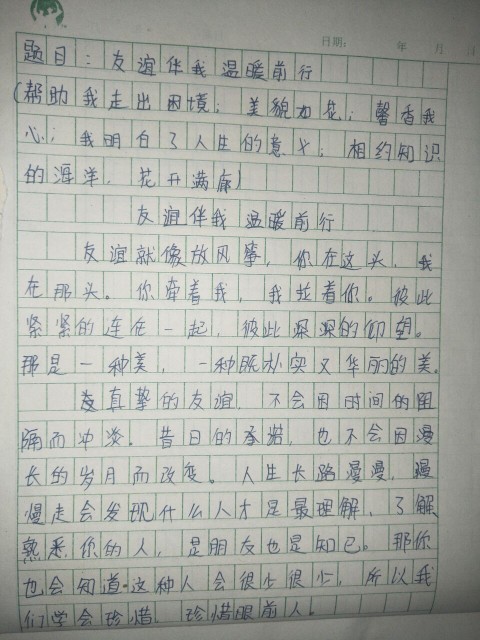 日期： 年 月 日
题目：友谊伴我 温暖前行
（帮助我走出困境；美貌如花；馨香我
心；我明白了人生的意义；相约知识
的海洋，花开满廊）
友谊伴我 温暖前行
友谊就像放风筝，你在这头，我
在那头。你牵着我，我拉着你。彼此
紧紧的连在一起，彼此深深的仰望。
那是一种美，一种既朴实又华丽的美。
真挚的友谊，不会因时间的阻
隔而冲淡。昔日的承诺，也不会因漫
长的岁月而改变。人生长路漫漫，漫
慢走会发现什么人才是最理解、了解、
熟悉你的人，是朋友也是知己。那你
也会知道这种人会很少很少，所以我
们学会珍惜，珍惜眼前人。